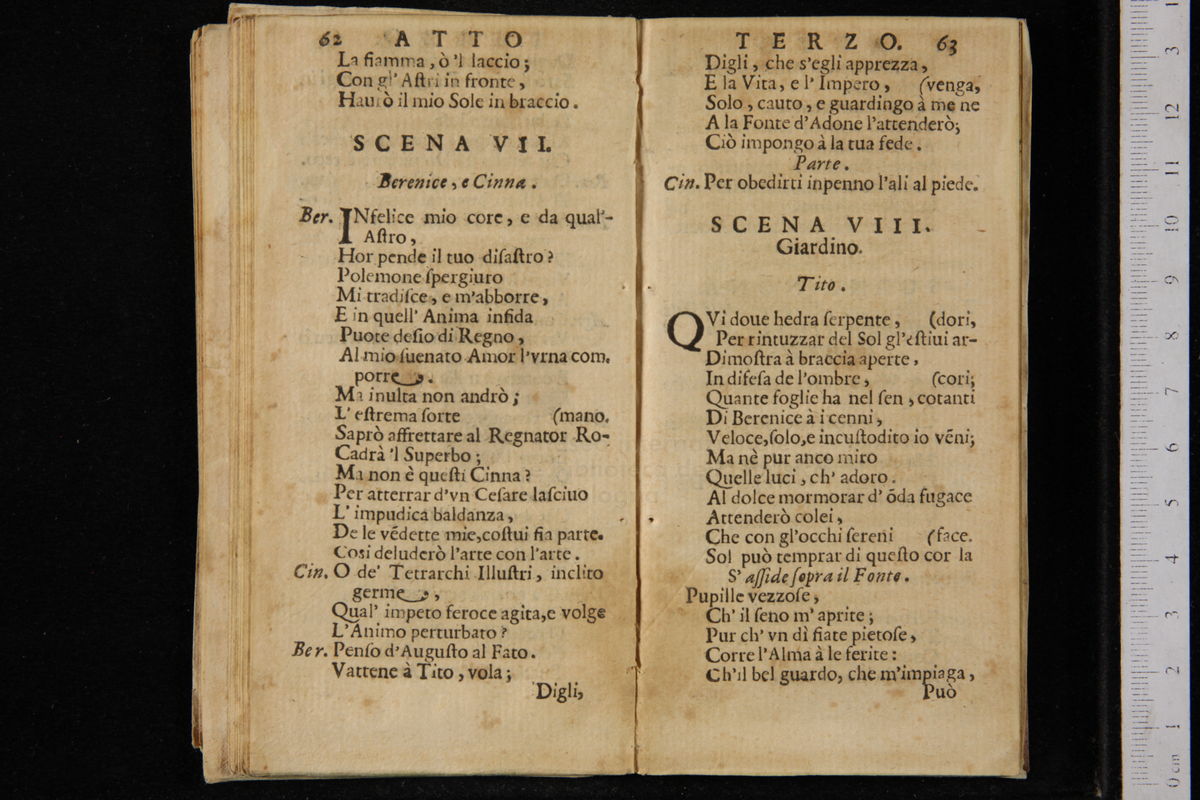 62 ATTO
La fiamma, ò 'l laccio;
Con gl' Aſtri in fronte,
Haurò il mio Sole in braccio.
SCENA VII.
Berenice, e Cinna.
Ber. INfelice mio core, e da qual'-
Aſtro,
Hor pende il tuo diſaſtro?
Polemone ſpergiuro
Mi tradiſce, e m'abborre,
E in quell' Anima infida
Puote deſio di Regno,
Al mio ſuenato Amor l'vrna com.
porre.
Ma inulta non andrò;
L' eſtrema ſorte (mano.
Saprò affrettare al Regnator Ro-
Cadrà 'l Superbo;
Ma non è queſti Cinna?
Per atterrar d'vn Ceſare laſciuo
L' impudica baldanza,
De le vẽdette mie, coſtui fia parte.
Cosi deluderò l'arte con l'arte.
Cin. O de' Tetrarchi Illuſtri, inclito
germe,
Qual' impeto feroce agita, e volge
L'Animo perturbato?
Ber. Penſo d'Auguſto al Fato.
Vattene à Tito, vola;
Digli,
TERZO. 63
Digli, che s'egli apprezza,
E la Vita, e l' Impero, (venga,
Solo, cauto, e guardingo à me ne
A la Fonte d'Adone l'attenderò;
Ciò impongo à la tua fede.
Parte.
Cin. Per obedirti inpenno l'ali al piede.
SCENA VIII.
Giardino.
Tito.
QVi doue hedra ſerpente, (dori,
Per rintuzzar del Sol gl'eſtiui ar-
Dimoſtra à braccia aperte,
In difeſa de l'ombre, (cori;
Quante foglie ha nel ſen, cotanti
Di Berenice à i cenni,
Veloce, ſolo, e incuſtodito io vẽni;
Ma nè pur anco miro
Quelle luci, ch' adoro.
Al dolce mormorar d' õda fugace
Attenderò colei,
Che con gl'occhi ſereni (face.
Sol può temprar di queſto cor la
S' aſſide ſopra il Fonte.
Pupille vezzoſe,
Ch' il ſeno m' aprite;
Pur ch' vn dì ſiate pietoſe,
Corre l'Alma à le ferite:
Ch'il bel guardo, che m'impiaga,
Può
0 cm 1 2 3 4 5 6 7 8 9 10 11 12 13